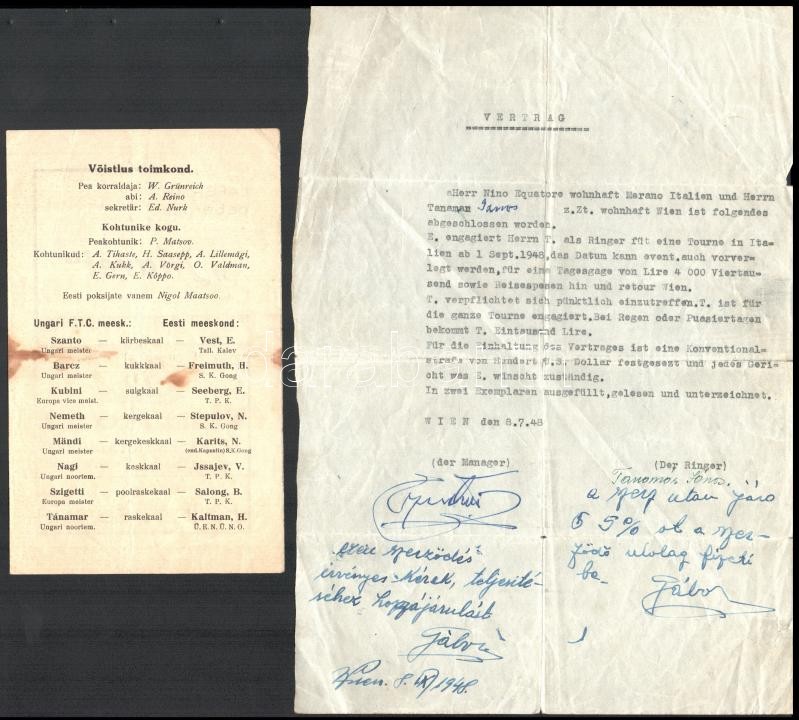 Võistlus toimkond.
Pea korraldaja: W. Grünreich
abi: A. Reino
sekretär: Ed. Nurk
Kohtunike kogu.
Peakohtunik: P. Matsov.
Kohtunikud: A. Tihaste, H. Saasepp, A. Lillemägi,
A. Kukk, A. Võrgi, O. Valdman,
E. Gern, E. Köppo.
Eesti poksijate vanem Nigol Maatsoo.
Ungari F.T.C. meesk.: Eesti meeskond:
Szanto — kärbeskaal — Vest, E.
Ungari meister Tall. Kalev
Barcz — kukkkaal — Freimuth, H.
Ungari meister S. K. Gong
Kubini — sulgkaal — Seeberg, E.
Europa vice meist. T. P. K.
Nemeth — kergekaal — Stepulov, N.
Ungari meister S. K. Gong
Mändi — kergekeskkaal — Karits, N.
Ungari meister (end. Kapsulin) S.K. Gong
Nagi — keskkaal — Jssajev, V.
Ungari noortem. T. P. K.
Szigetti — poolraskekaal — Salong, B.
Europa meister T. P. K.
Tánamar — raskekaal — Kaltman, H.
Ungari noortem. Ü.E.N.Ü.N.O.
VERTRAG
Herr Nino Equatore wohnhaft Merano Italien und Herrn
Tanaman János z.Zt. wohnhaft Wien ist folgendes
abgeschlossen worden.
E. engagiert Herrn T. als Ringer füt eine Tourne in Ita-
lien ab 1 Sept.1948,das Datum kann event.auch vorver-
legt werden,für eine Tagesgage von Lire 4 000 Viertau-
send sowie Reisespesen hin und retour Wien.
T. verpflichtet sich pünktlich einzutreffen.T. ist für
die ganze Tourne engagiert.Bei Regen oder Puasiertagen
bekommt T. Eintausand Lire.
Für die Einhaltung des Vertrages ist eine Konventional-
straße von Hundert U.S. Dollar festgesezt und jedes Geri-
cht was E. winscht zuständig.
In zwei Exemplaren ausgefüllt,gelesen und unterzeichnet.
WIEN den 8.7.48
(der Manager) (Der Ringer)
Tanamar János.
a szerz után járó
5% ot a szer-
ződő utolag fizeti
be-
Gábor
Ezen szerződés
érvényes. Kérek, teljesité-
séhez hozzájárulást
Gábor
Wien. 8. 1948.